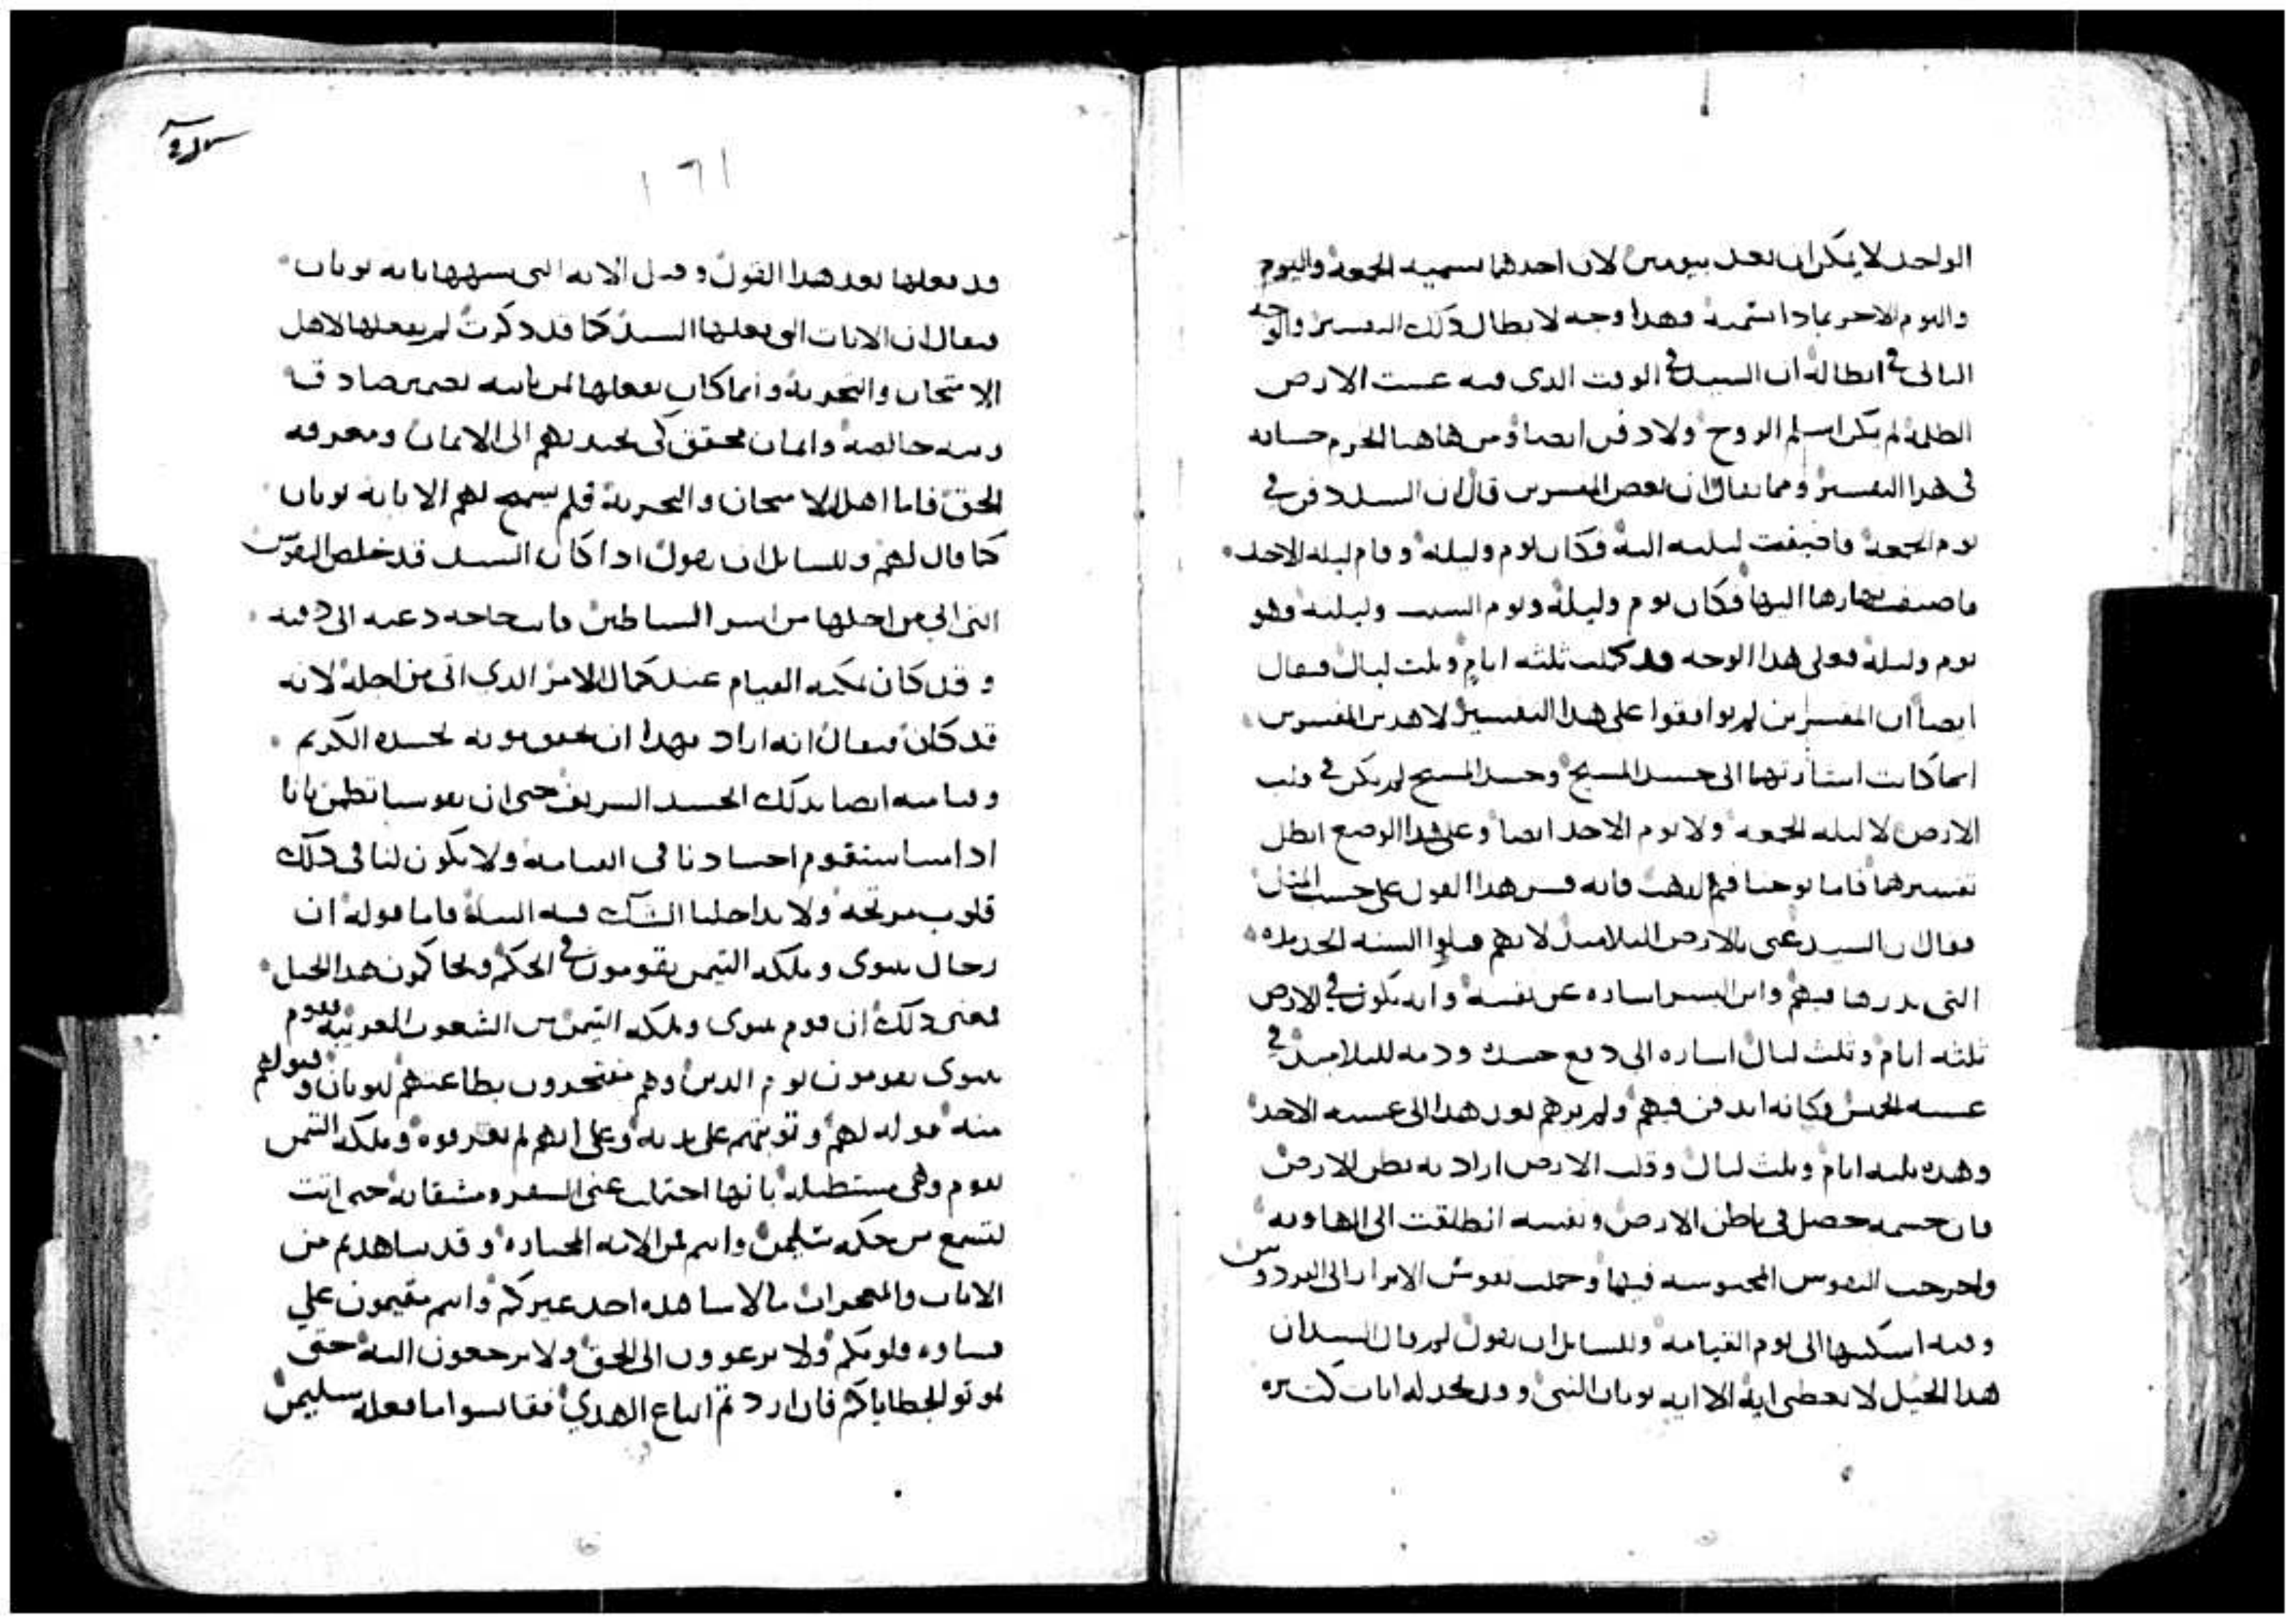 الواحد لا يمكن ان يعد بيومين لان احدهما يسميه الجمعة واليوم
واليوم الاخر بماذا نسميه وهذا وجه لابطال ذلك التفسير والوجه
الثاني في ابطاله ان السيد في الوقت الذي فيه غشت الارض
الظلمة لم يكن اسلم الروح ولا دفن ايضا ومن هاهنا انخرم حسابه
في هذا التفسير ومما يقال ان بعض المفسرين قال ان السيد دفن في
يوم الجمعة فاضيفت ليلته اليه فكان يوم وليلة وقام ليلة الاحد
فاضيف نهارها اليها فكان يوم وليلة ويوم السبت وليلته وهو
يوم وليلة فعلى هذا الوجه قد كملت ثلثه ايام وثلث ليال فيقال
ايضا ان المفسرين لم يوافقوا على هذا التفسير لا هذين المفسرين
انما كانت اشارتهما الى جسد المسيح وجسد المسيح لم يكن في قلب
الارض لا ليلة الجمعة ولا يوم الاحد ايضا وعلى هذا الوضع ابطل
تفسيرهما فاما يوحنا فم الذهب فانه فسر هذا القول على حسب المثل
فقال ان السيد عنى بالارض التلاميذ لانهم قبلوا السنه الجديده
التي بذرها فيهم وابن البشر اشاره عن نفسه وانه يكون في الارض
ثلثه ايام وثلث ليال اشاره الى دفع جسده ودمه للتلاميذ في
عشيه الخميس وكانه اندفن فيهم ولم يرهم بعد هذا الى عشيه الاحد
وهذه ثلثه ايام وثلث ليال وقلب الارض اراد به بطن الارض
فان جسمه حصل في باطن الارض ونفسه انطلقت الى الهاويه
واخرجت النفوس المحبوسه فيها وحملت نفوس الابرار الى الفردوس
وفيه اسكنها الى يوم القيامه وللسايل ان يقول لم قال السيد ان
هذا الجيل لا يعطى اية الا اية يونان النبي وقد نجد له ايات كثيره
١٦١
قد فعلها بعد هذا القول وقبل الايه التي شبهها بايه يونان
فيقال ان الايات التي فعلها السيد كما قد ذكرت لم يفعلها لاهل
الامتحان والتجربة وانما كان يفعلها لمن ياتيه بضمير صادق
ونيه خالصة وايمان محقق كي يجتذبهم الى الايمان ومعرفه
الحق فاما اهل الامتحان والتجربة فلم يسمح لهم الا باية يونان
كما قال لهم وللسايل ان يقول اذا كان السيد قد خلص النفوس
التي اتى من اجلها من اسر الشياطين فاي حاجه دعته الى دفنه
وقد كان يمكنه القيام عند كمال الامر الذي اتى من اجله لانه
قد كان فيقال انه اراد بهذا ان يحقق موته بجسده الكريم
وقيامته ايضا بذلك الجسد الشريف حتى ان نفوسنا تطمن باننا
اذا متنا ستقوم اجسادنا في القيامة ولا يكون لنا في ذلك
قلوب مرتجه ولا يداخلنا الشك فيه البتة فاما قوله ان
رجال نينوى وملكة التيمن يقومون في الحكم ويحاكمون هذا الجيل
فمعنى ذلك ان قوم نينوى وملكه التيمن من الشعوب الغريبة فقوم
نينوى يقومون يوم الدين وهم مفتخرون بطاعتهم ليونان وقبولهم
منه قوله لهم وتوبتهم على يديه وعلى انهم لم يعرفوه وملكه التيمن
تقوم وهي مستطيلة بانها احتملت عنى السفر ومشقاته حتى اتت
لتسمع من حكمه سليمن وانتم لمن الامه المختاره وقد شاهدتم من
الايات والمعجزات ما لا شاهده احد غيركم وانتم مقيمون على
قساوه قلوبكم ولا ترعوون الى الحق ولا ترجعون اليه حتى
تموتوا بخطاياكم فان اردتم اتباع الهدي فقايسوا ما فعله سليمن